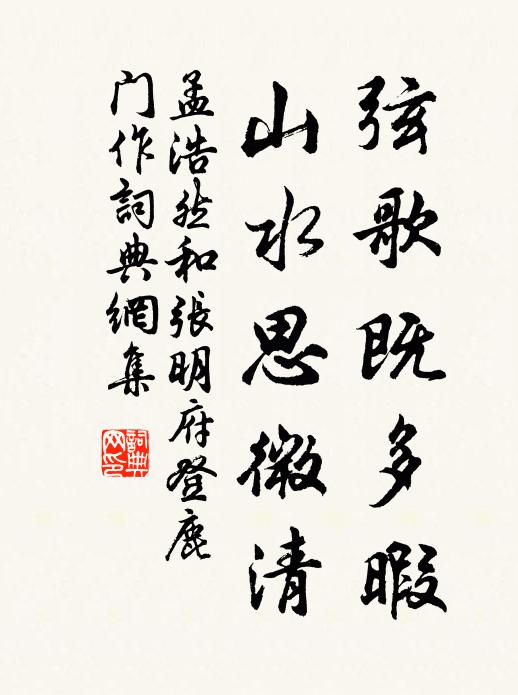 弦歌既多暇
山水思微清
孟浩然和張明府登鹿
门作詞典網集
詞典
网印